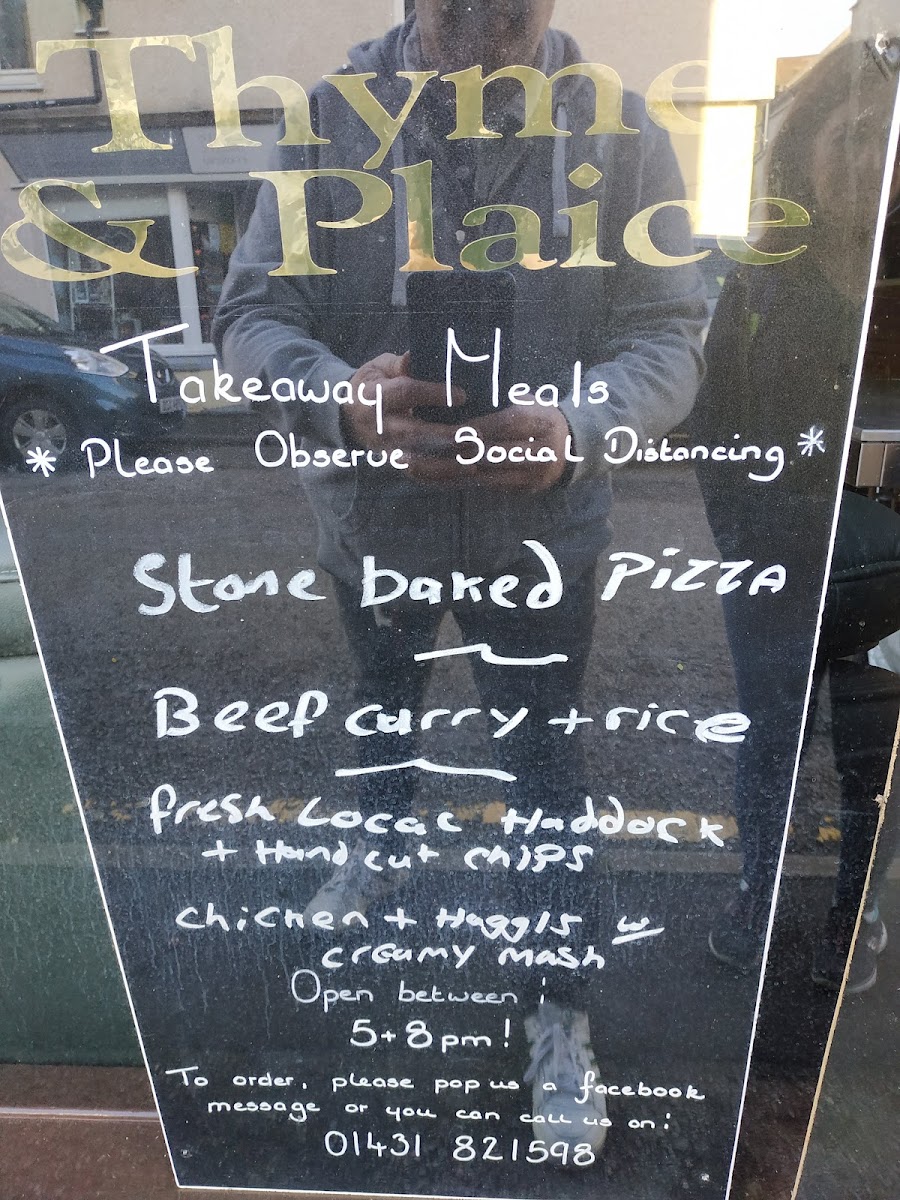 Thyme
& Plaice
Takeaway Meals
* Please Observe Social Distancing *
Stone baked Pizza
Beef curry + rice
fresh Local Haddock
+ Hand cut chips
chicken + Haggis w
creamy mash
Open between :
5+8pm!
To order, please pop us a facebook
message or you can call us on:
01431 821598